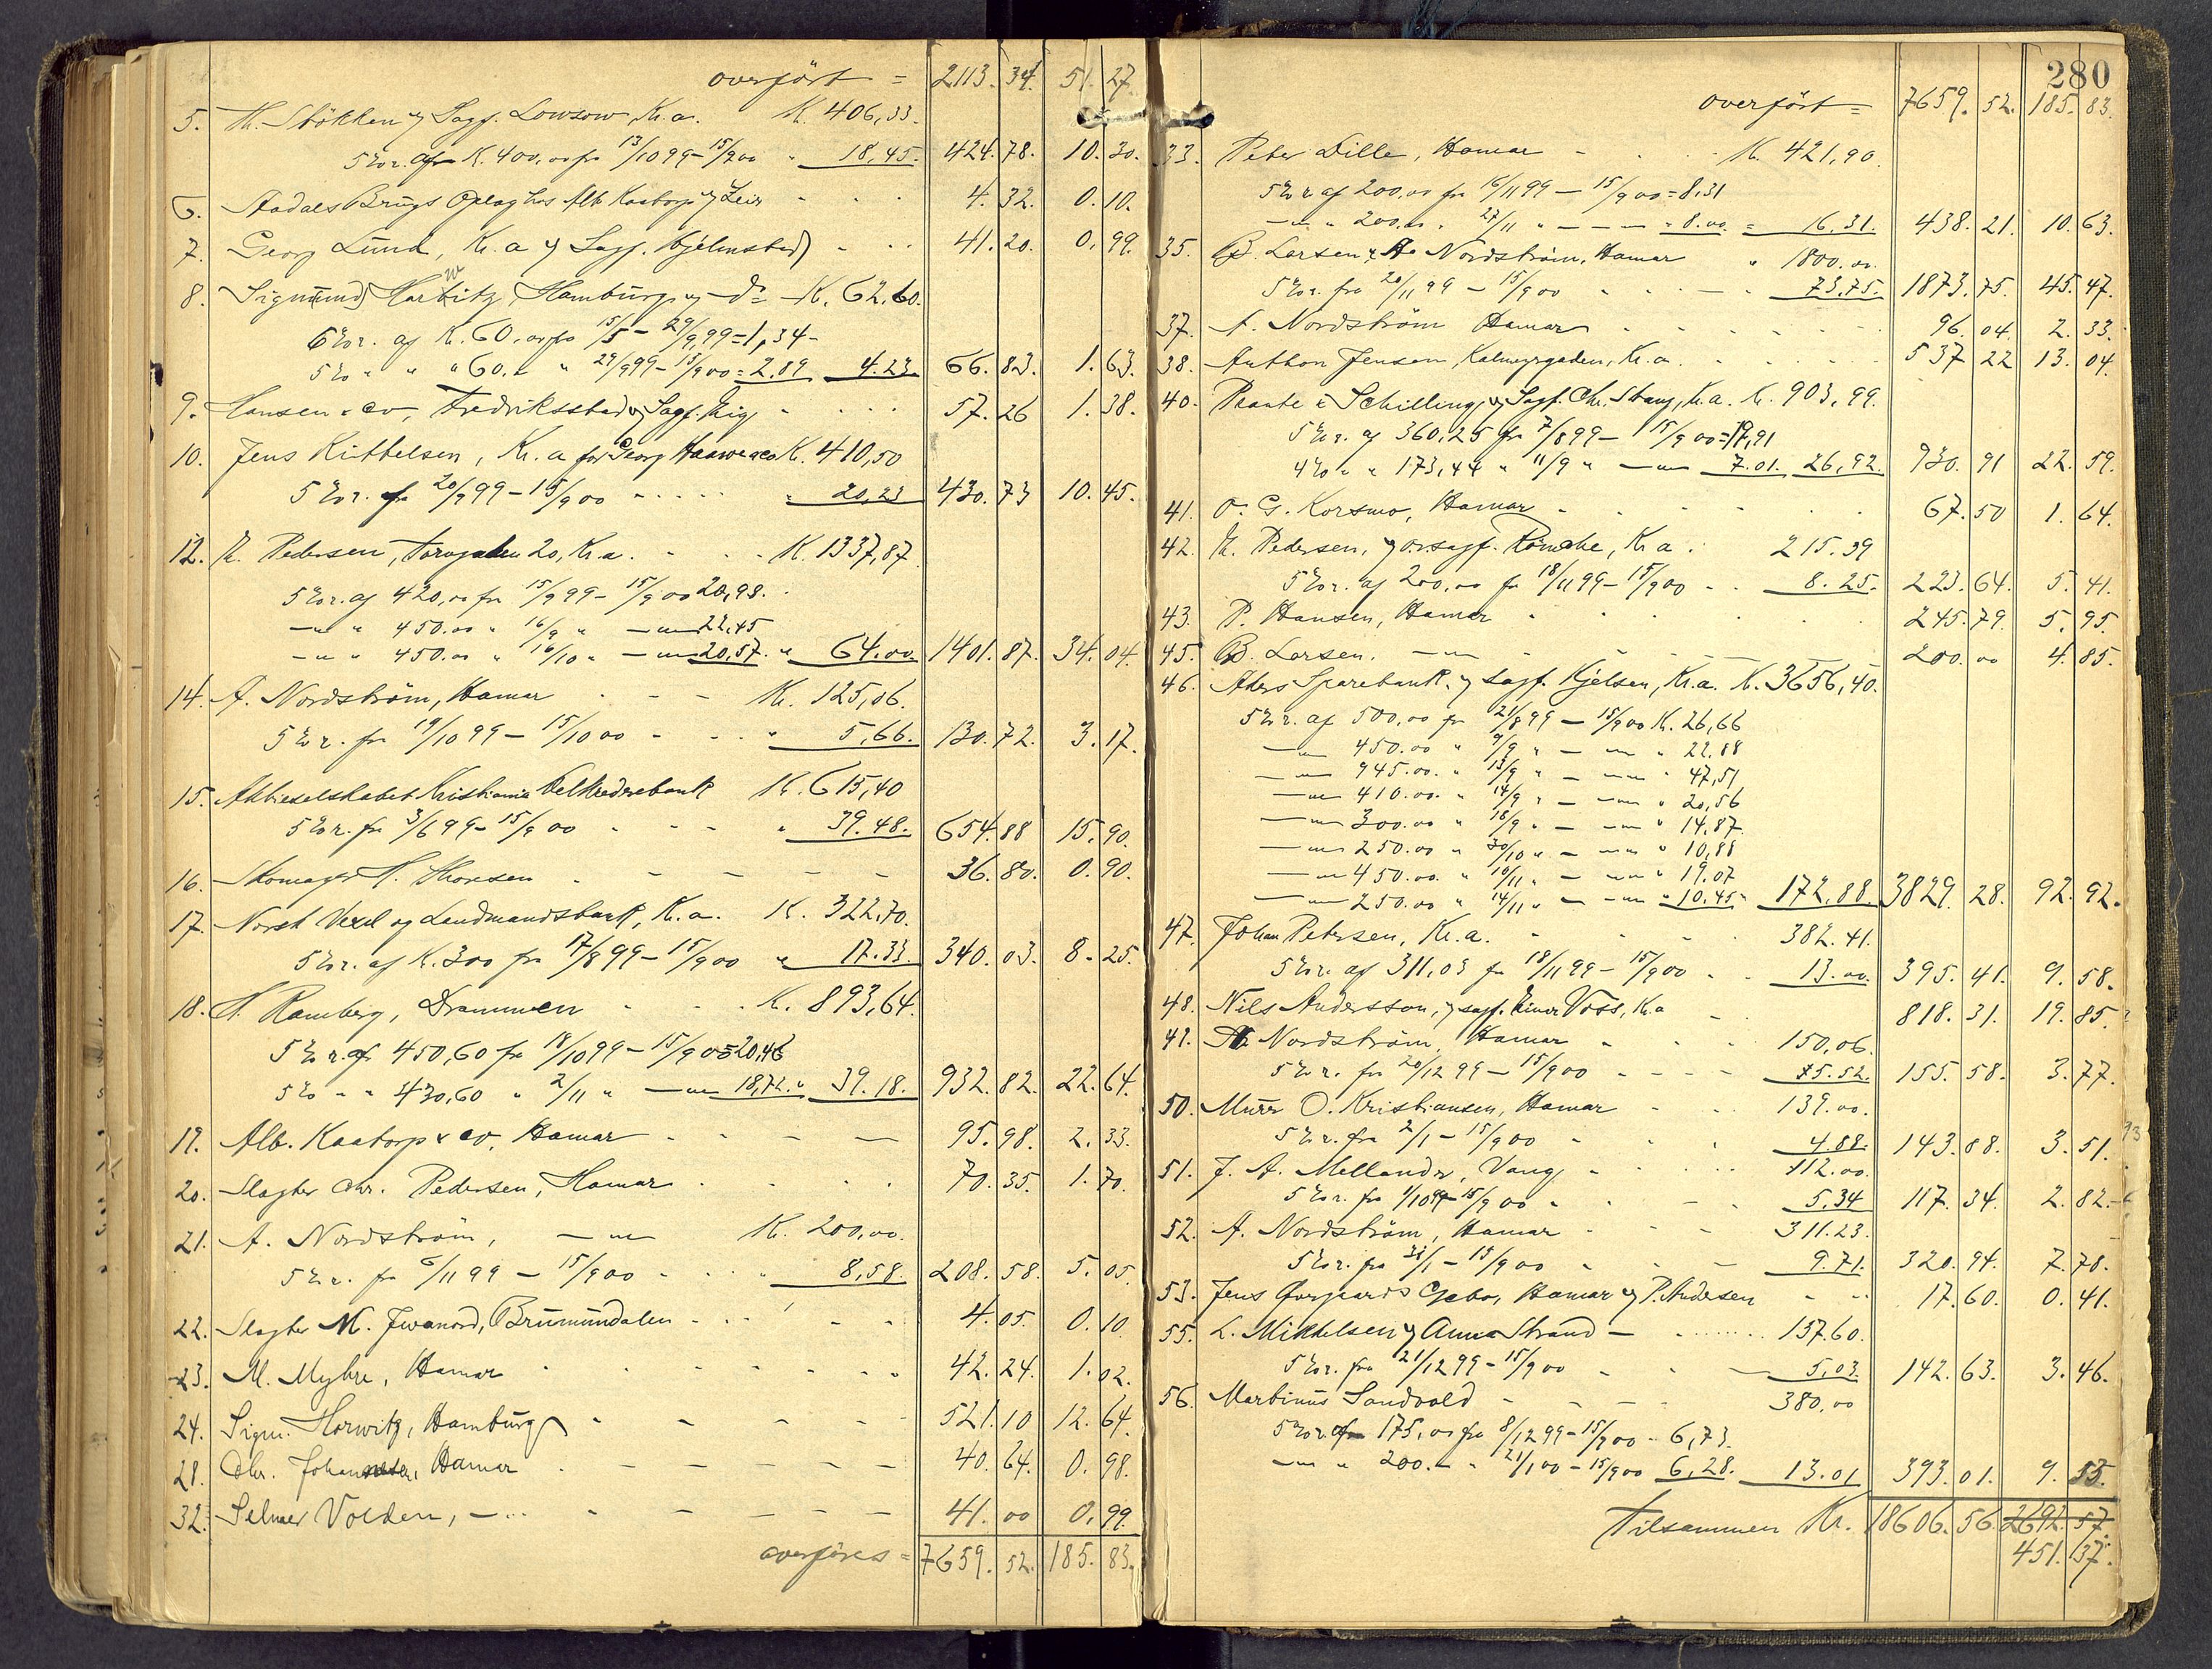 overført = 2113. 34. 51. 27
5. Th. Stökken y Sagf. Lowsow, Kr.a. K. 406,33.
5% r. af K. 400,00 fra 13/10 99 – 15/9 00 " 18,45. 424. 78. 10. 30.
6. Aadals Brugs Oplag hos Alb. Kaatorp y Leir 4. 32. 0. 10.
7. Georg Lund, Kr.a y Sagf. Hjelmstad 41. 20. 0. 99.
8. Sigmund Horwitz, Hamburg y do K. 62,60.
6% r. af K. 60,00 fra 15/5 – 29/9 99 = 1,34 –
5% " " " 60. " " 29/9 99 – 15/9 00 = 2.89 4.23. 66. 83. 1. 63.
9. Hansen & co, Fredriksstad y Sagf. 57. 26 1. 38.
10. Jens Kittelsen, Kr.a for Georg K. 410,50
5% r. fra 20/9 99 – 15/9 00 " 20,23 430. 73 10. 45.
12. N. Pedersen, Torvgaden 20, Kr.a. K. 1337,87
5% r. af 420,00 fra 15/9 99 – 15/9 00 20,98.
— " — " 450.00 " 16/9 " — " — 22,45
— " — " 450.00 " 16/10 " — " — 20,57. " 64.00 1401. 87. 34. 04.
14. A. Nordström, Hamar Kr. 125,06.
5% r. fra 19/10 99 – 15/10 00 " 5,66. 130. 72. 3. 17.
15. Aktieselskabet Kristiania Velkrederebank K. 615,40
5% r. fra 3/6 99 – 15/9 00 " 39.48. 654. 88 15. 90.
16. Skomager H. Thoresen 36. 80. 0. 90.
17. Norsk Vexel og Landmandsbank, Kr.a. K. 322,70.
5% r. af K. 300 fra 17/8 99 – 15/9 00 " 17.33. 340. 03. 8. 25.
18. H. Ramberg, Drammen K. 893,64.
5% r. af 450,60 fra 18/10 99 – 15/9 00 = 20,46
5% " " 430,60 " 2/11 " — " — 18,72. " 39.18. 932. 82. 22. 64.
19. Alb. Kaatorp & co, Hamar 95. 98. 2. 33.
20. Slagter Chr. Pedersen, Hamar 70. 35. 1. 70.
21. A. Nordström, — " — K. 200,00.
5% r. fra 6/11 99 – 15/9 00 " 8,58. 208. 58. 5. 05.
22. Slagter M. Brumunddalen 4. 05. 0. 10.
23. M. Myhre, Hamar 42. 24. 1. 02.
24. Sigm. Horwitz, Hamburg 521. 10 12. 64.
28. Chr. Johannesen, Hamar 40. 64. 0. 98.
32. Selmer Volden, — " — 41. 00 0. 99.
overføres = 7659. 52. 185. 83.
280
overført = 7659. 52. 185. 83.
33. Peter Lille, Hamar K. 421,90.
5% r. af 200,00 fra 16/11 99 – 15/9 00 = 8,31
— " — " 200,00 " 27/11 " — " — = 8.00 = 16.31. 438. 21. 10. 63.
35. B. Larsen & A. Nordström, Hamar " 1800.00.
5% r. fra 20/11 99 – 15/9 00 73,75. 1873. 75. 45. 47.
37. A. Nordström Hamar 96. 04. 2. 33.
38. Anthon Jensen, Kalmeyrgaden, Kr.a 537 22 13. 04.
40. Schilling, y Sagf. Chr. Stang, Kr.a. K. 903,99.
5% r. af 360,25 fra 7/8 99 – 15/9 00 = 19,91
4% " " 173,44 " 11/9 " — " — 7.01. 26,92. 930. 91 22. 59.
41. O. G. Korsmo, Hamar 67. 50 1. 64.
42. N. Pedersen, y o.r.sagf. Kr.a. 215.39
5% r. af 200,00 fra 18/11 99 – 15/9 00 8.25. 223. 64. 5. 41.
43. P. Hansen, Hamar 245. 79. 5. 95.
45. B. Larsen. — " — 200. 00 4. 85.
46. Akers Sparebank. y sagf. Kjelsen, Kr.a. K. 3656,40.
5% r. af 500,00 fra 21/8 99 – 15/9 00 K. 26,66
— " — 450.00 " 9/9 " — " — " 22,88
— " — 945.00. " 13/9 " — " — " 47,51
— " — 410.00. " 14/9 " — " — " 20,56
— " — 300.00 " 18/9 " — " — " 14,87
— " — 250.00 " 30/10 " — " — " 10,88
— " — 450.00. " 10/11 " — " — " 19.07
— " — 250.00 " 14/11 " — " — " 10,45 " 172,88. 3829. 28. 92. 92.
47. Johan Petersen, Kr.a. 382.41.
5% r. af 311,03 fra 18/11 99 – 15/9 00 13.00. 395. 41. 9. 58.
48. Nils Andersson, y sagf. Einar Voss, Kr.a 818. 31. 19. 85.
49. A. Nordström, Hamar 150,06.
5% r. fra 20/12 99 – 15/9 00 75.52. 155. 58. 3. 77.
50. Murer O. Kristiansen, Hamar 139.00.
5% r. fra 2/1 – 15/9 00 4.88. 143. 88. 3. 51.
51. J. A. Mellander, Vang 112.00.
5% r. fra 1/10 99 – 15/9 00 5,34 117. 34. 2. 82.
52. A. Nordström, Hamar 311.23.
5% r. fra 31/1 – 15/9 00 9.71. 320. 94. 7. 78.
53. Jens Gebo, Hamar y P. Andersen 17. 60. 0. 41.
55. L. Mikkelsen y Anna Strand — 137.60.
5% r. fra 21/12 99 – 15/9 00 5,03. 142. 63. 3. 46.
56. Martinus Sandvold 380,00
5% r. af 175,00 fra 8/12 99 – 15/9 00 – 6,73.
— " — " 200.– " 21/1 00 – 15/9 00 6,28. 13.01 393. 01. 9. 53.
Tilsammen Kr. 18606. 56. 2692. 57.
451. 37.